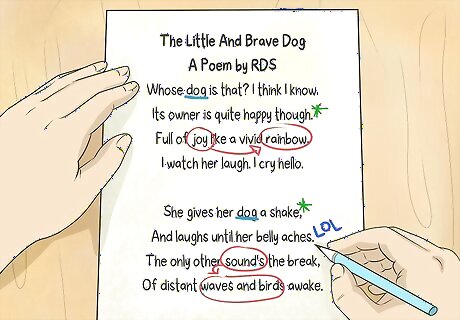 The Little And Brave Dog
A Poem by RDS
Whose dog is that? I think I know.
Its owner is quite happy though.*
Full of joy like a vivid rainbow.
I watch her laugh. I cry hello.
She gives her dog a shake,*
And laughs until her belly aches. LOL
The only other sound's the break,
Of distant waves and birds awake.